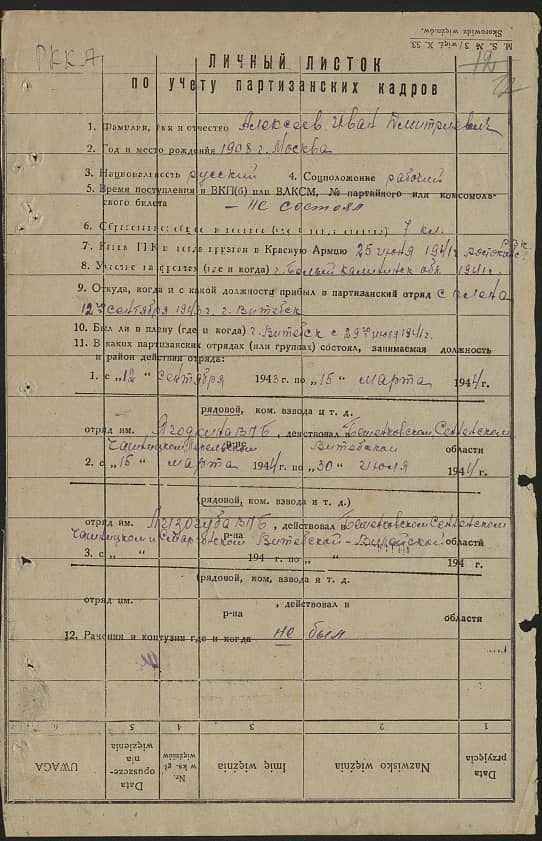 M. S. № 3 / więź. X. 33.
Skorowidz więźniów.
РККА
12
12
ЛИЧНЫЙ ЛИСТОК
по учету партизанских кадров
1. Фамилия, имя и отчество Алексеев Иван Дмитриевич
2. Год и место рождения 1908 г. Москва
3. Национальность русский 4. Соцположение рабочий
5. Время поступления в ВКП(б) или ВЛКСМ, № партийного или комсомоль-
ского билета — не состоял
6. 7 кл.
7. Каким РВК и когда призван в Красную Армию 25 июня 1941 г. РВК
8. Участие на фронтах (где и когда) г. Белый Калининск. обл. 1941 г.
9. Откуда, когда и с какой должности прибыл в партизанский отряд с плена
12го сентября 1943 г. г. Витебск
10. Был ли в плену (где и когда) г. Витебск с 29го июля 1941 г.
11. В каких партизанских отрядах (или группах) состоял, занимаемая должность
и район действия отряда:
1. с „12 “ сентября 1943 г. по „15 “ марта 1944 г.
рядовой, ком. взвода и т. д.
отряд им. ВПБ, действовал в Бешенковском, Сенненском
Чашницком р-на Витебской области
2. с „15 “ марта 1944 г. по „30 “ июля 1944 г.
(рядовой, ком. взвода и т. д.)
отряд им. ВПБ, действовал в Бешенковском, Сенненском
Чашницком и р-на Витебской – области
3. с „ “ 194 г. по „ “ 194 г.
(рядовой, ком. взвода и т. д.
отряд им. , действовал в
р-на области
12. Ранения и контузии где и когда не был
6 5 4 3 2 1
UWAGA
Data opuszcze-nia więzienia
Nr. w ks. gł. więźniów
Imię więźnia
Nazwisko więźnia
Data przyjęcia